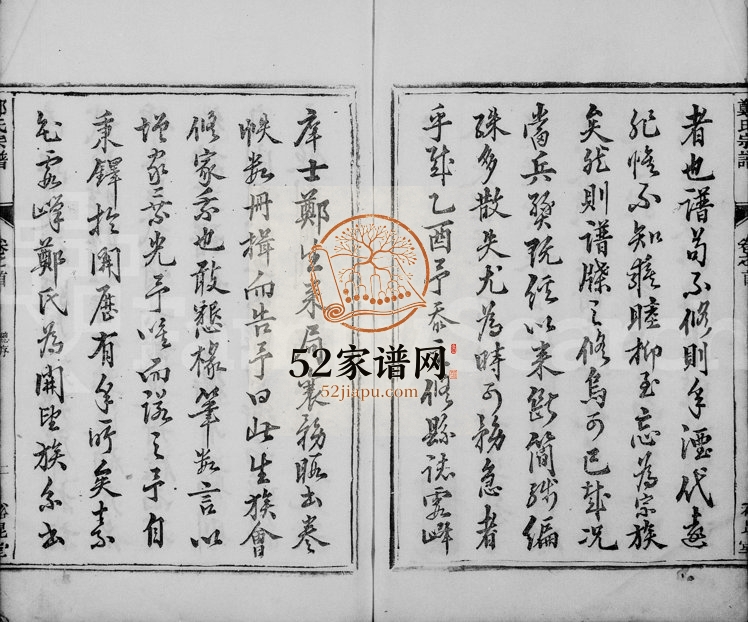 者也譜苟不修則年湮代遠
不知
矣然則譜牒之修烏可已哉況
當兵燹既經以来斷簡殘編
殊多散失尤為時之務急者
乎哉乙酉予忝修縣誌霞峰
庠士鄭生来局襄務暇出卷
帙數冊揖而告予曰此生族會
修家乘也敢懇椽筆數言以
增家乘光予唯而諾之予自
秉鐸於開歷有年所矣素
霞峰鄭氏為開望族系出
鄭氏宗譜
卷之首
52家谱网
52jiapu.com